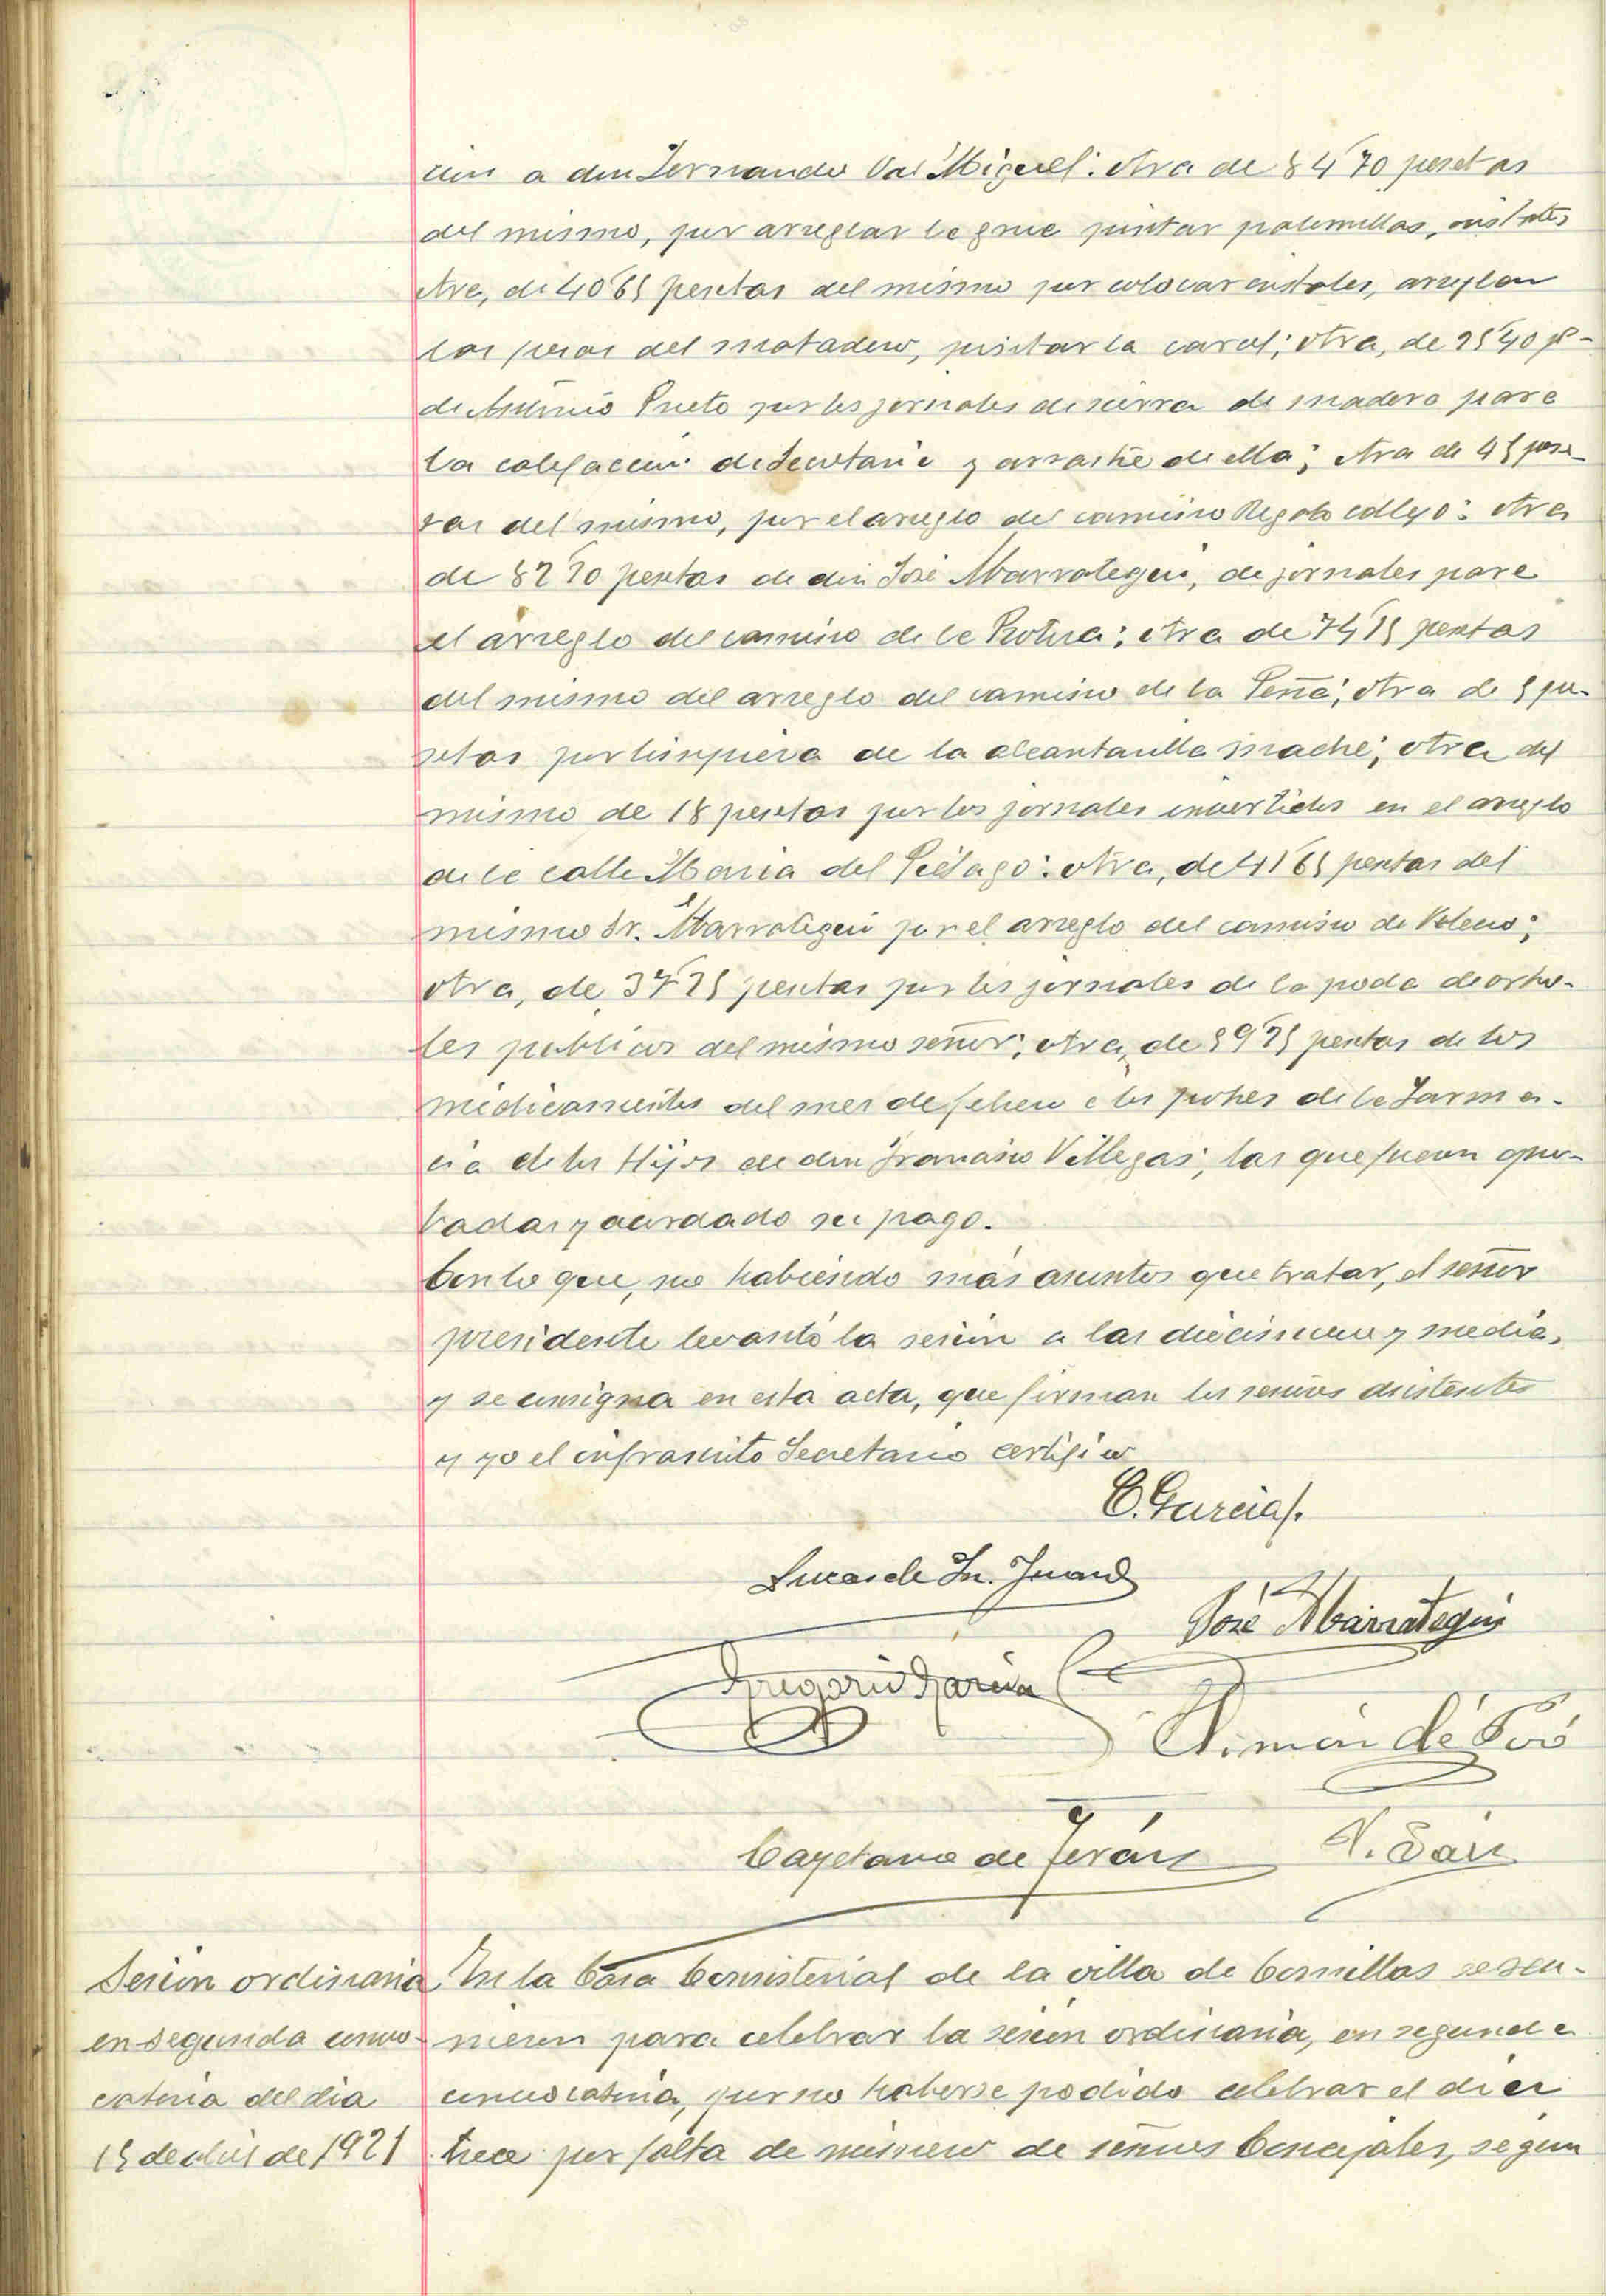 a don Fernando Val Miguel: otra de 84'70 pesetas
del mismo, por arreglar la grue pintar palomillas, cristales
otra, de 40'65 pesetas del mismo por colocar cristales, arreglar
las pesas del matadero, pintar la carcel; otra, de 25'40 pts-
de Antonio Prieto por los jornales de sierra de madera para
la calefacción de Secretaria y arrastre de ella; otra de 45 pese-
tas del mismo, por el arreglo del camino Regato collejo: otra
de 82'70 pesetas de don José Marrategui, de jornales para
el arreglo del camino de la; otra de 74'75 pesetas
del mismo del arreglo del camino de la Peña; otra de 5 pe-
setas por limpieza de la alcantarilla; otra del
mismo de 18 pesetas por los jornales invertidos en el arreglo
de la calle Maria del Piélago: otra, de 41'65 pesetas del
mismo Sr. Marrategui por el arreglo del camino de;
otra, de 37'25 pesetas por los jornales de la poda de arbo-
les publicos del mismo señor; otra, de 59'25 pesetas de los
medicamentos del mes de febrero a los pobres de la Farma-
cia de los Hijos de don Francisco Villegas; las que fueron apro-
badas y acordado su pago.
Con lo que, no habiendo más asuntos que tratar, el señor
presidente levantó la sesión a las diecinueve y media,
y se consigna en esta acta, que firman los señores asistentes
y yo el infrascrito Secretario certifico
C. Garcia
Lucas de Sn. Juan
José Marrategui
Gregorio Garcia
Simón de Poó
Cayetano de Terán
Sesión ordinaria
en segunda convo-
catoria del dia
15 de abril de 1921
En la Casa Consistorial de la villa de Comillas se reu-
nieron para celebrar la sesión ordinaria, en segunda
convocatoria, por no haberse podido celebrar el dia
trece por falta de número de señores Concejales, según